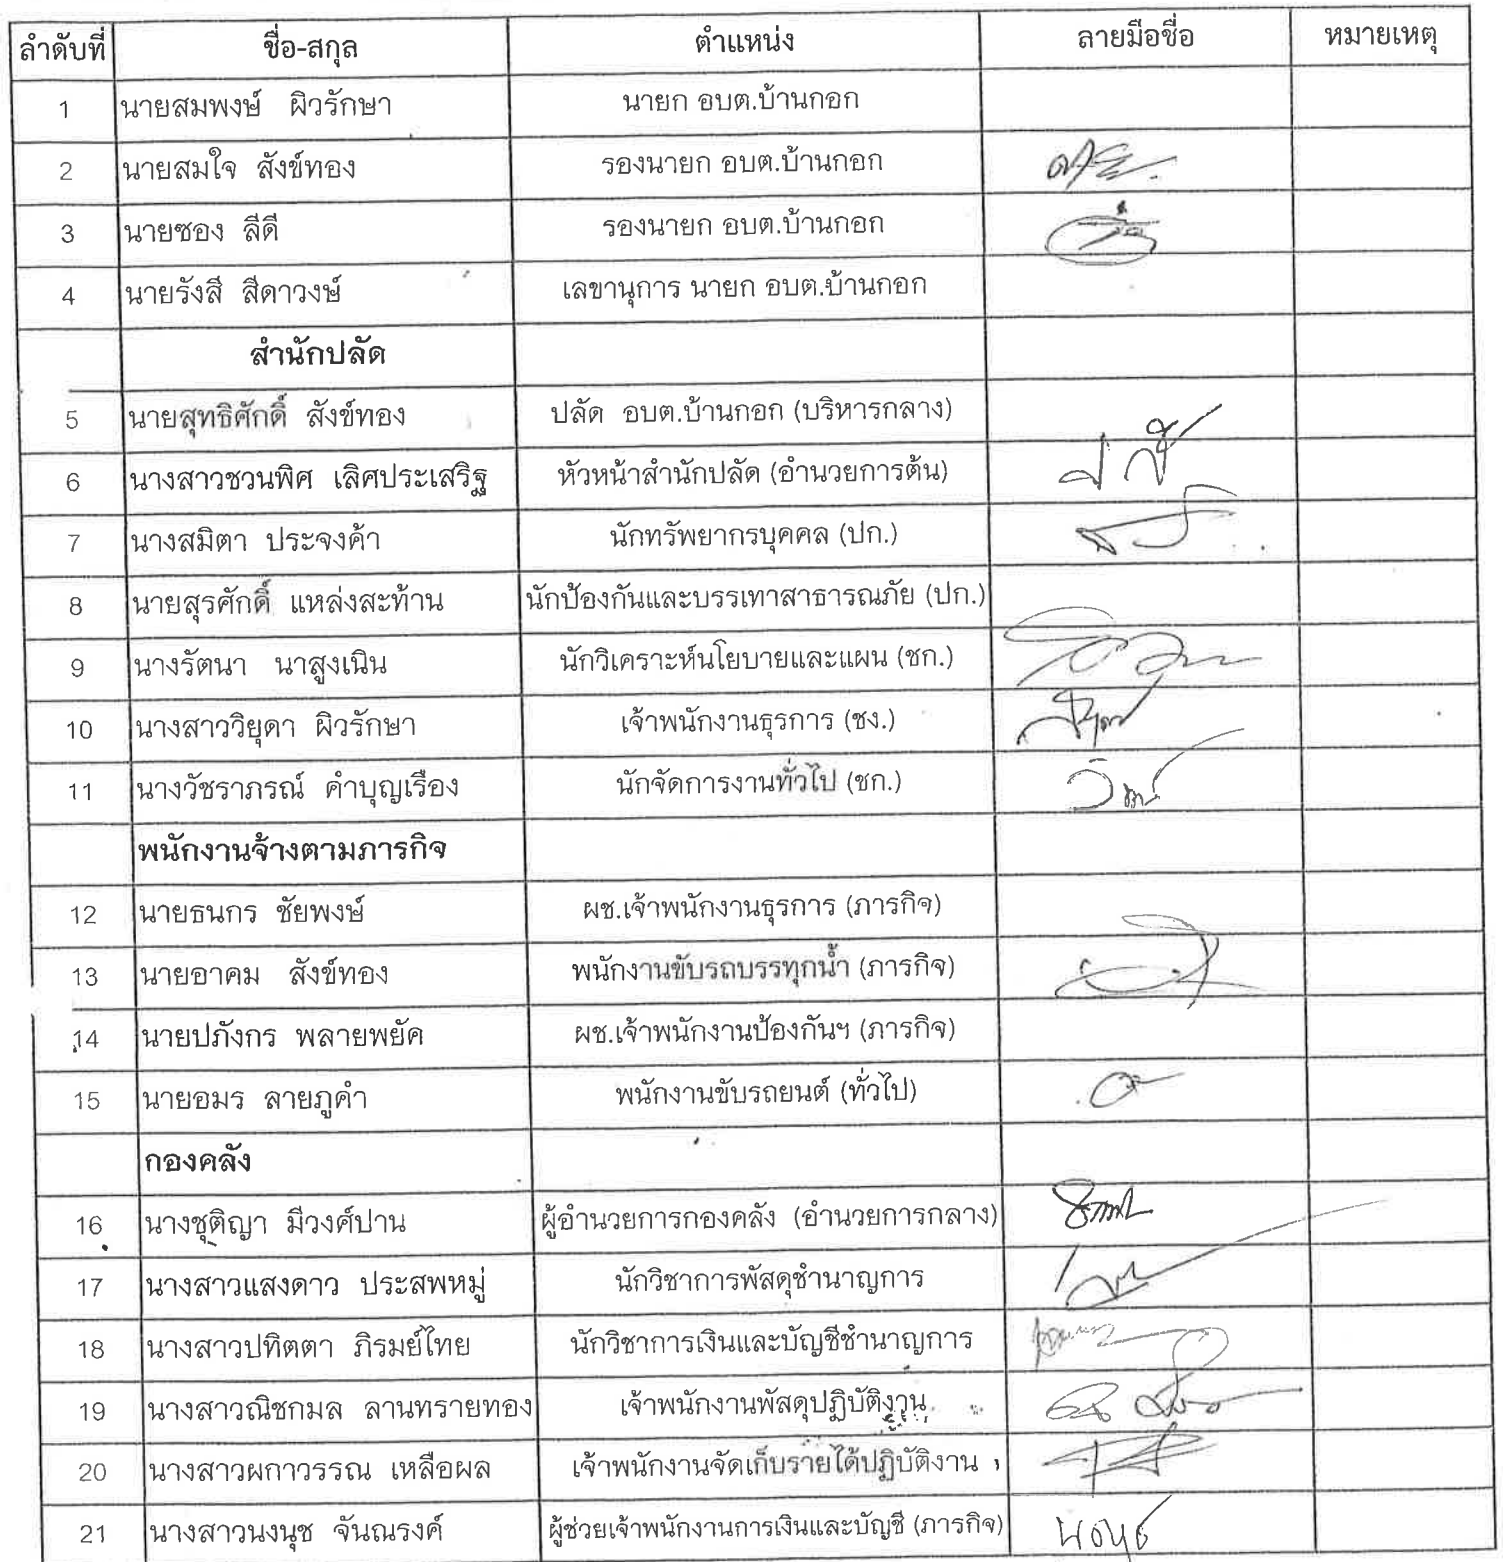 ลำดับที่ ชื่อ-สกุล ตำแหน่ง ลายมือชื่อ หมายเหตุ
1 นายสมพงษ์ ผิวรักษา นายก อบต.บ้านกอก
2 นายสมใจ สังข์ทอง รองนายก อบต.บ้านกอก
3 นายซอง ลีดี รองนายก อบต.บ้านกอก
4 นายรังสี สีดาวงษ์ เลขานุการ นายก อบต.บ้านกอก
สำนักปลัด
5 นายสุทธิศักดิ์ สังข์ทอง ปลัด อบต.บ้านกอก (บริหารกลาง)
6 นางสาวชวนพิศ เลิศประเสริฐ หัวหน้าสำนักปลัด (อำนวยการต้น)
7 นางสมิตา ประจงค้า นักทรัพยากรบุคคล (ปก.)
8 นายสุรศักดิ์ แหล่งสะท้าน นักป้องกันและบรรเทาสาธารณภัย (ปก.)
9 นางรัตนา นาสูงเนิน นักวิเคราะห์นโยบายและแผน (ชก.)
10 นางสาววิยุดา ผิวรักษา เจ้าพนักงานธุรการ (ชง.)
11 นางวัชราภรณ์ คำบุญเรือง นักจัดการงานทั่วไป (ชก.)
พนักงานจ้างตามภารกิจ
12 นายธนกร ชัยพงษ์ ผช.เจ้าพนักงานธุรการ (ภารกิจ)
13 นายอาคม สังข์ทอง พนักงานขับรถบรรทุกน้ำ (ภารกิจ)
14 นายปภังกร พลายพยัค ผช.เจ้าพนักงานป้องกันฯ (ภารกิจ)
15 นายอมร ลายภูคำ พนักงานขับรถยนต์ (ทั่วไป)
กองคลัง
16 นางชุติญา มีวงศ์ปาน ผู้อำนวยการกองคลัง (อำนวยการกลาง)
17 นางสาวแสงดาว ประสพหมู่ นักวิชาการพัสดุชำนาญการ
18 นางสาวปทิตตา ภิรมย์ไทย นักวิชาการเงินและบัญชีชำนาญการ
19 นางสาวณิชกมล ลานทรายทอง เจ้าพนักงานพัสดุปฏิบัติงาน
20 นางสาวผกาวรรณ เหลือผล เจ้าพนักงานจัดเก็บรายได้ปฏิบัติงาน
21 นางสาวนงนุช จันณรงค์ ผู้ช่วยเจ้าพนักงานการเงินและบัญชี (ภารกิจ) นงนุช